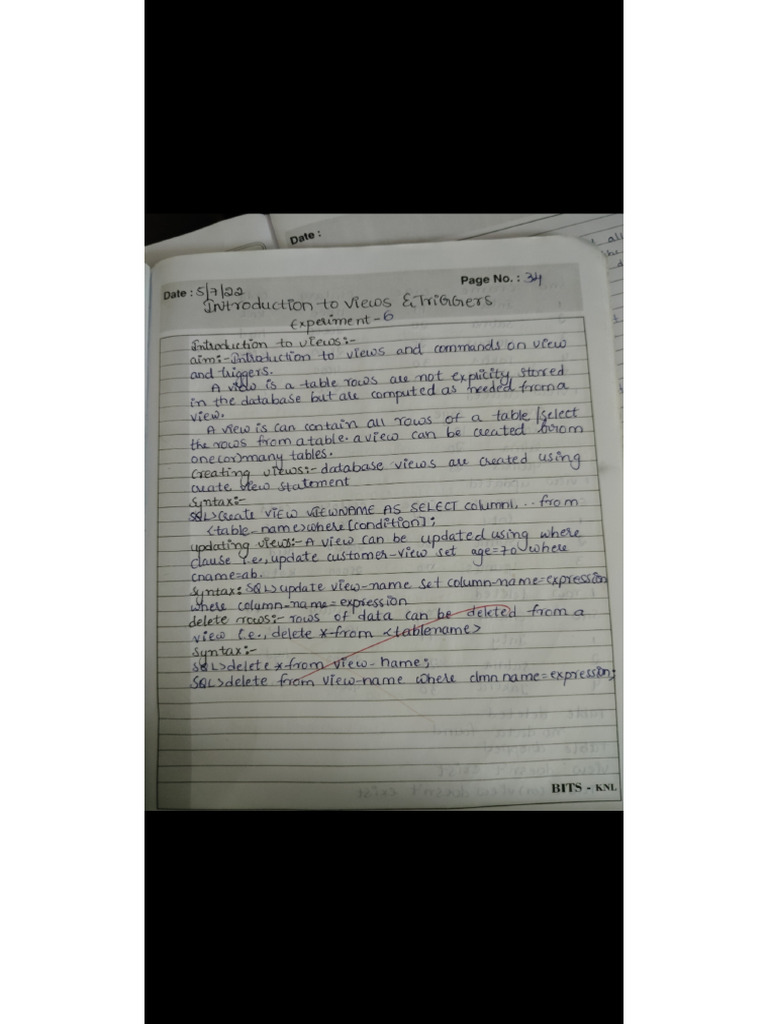 Date :
Page No. : 34
Date : 5/7/22
Introduction to views & TriGGers
Experiment-6
Introduction to views:-
aim:-Introduction to views and commands on view
and triggers.
A view is a table rows are not explicity stored
in the database but are computed as needed from a
view.
A view is can contain all rows of a table/select
the rows from a table. a view can be created from
one(or)many tables.
creating views:-database views are created using
create view statement
Syntax:-
SQL>Create VIEW VIEWNAME AS SELECT column1,...from
<table_name>where[condition];
updating views:-A view can be updated using where
clause i.e., update customer-view set age=70 where
cname=ab.
Syntax: SQL>update view-name set column-name=expression
where column-name=expression
delete rows:-rows of data can be deleted from a
view i.e., delete *from <tablename>
Syntax:-
SQL>delete *from view-name;
SQL>delete from view-name where clmn name=expression;
BITS - KNL